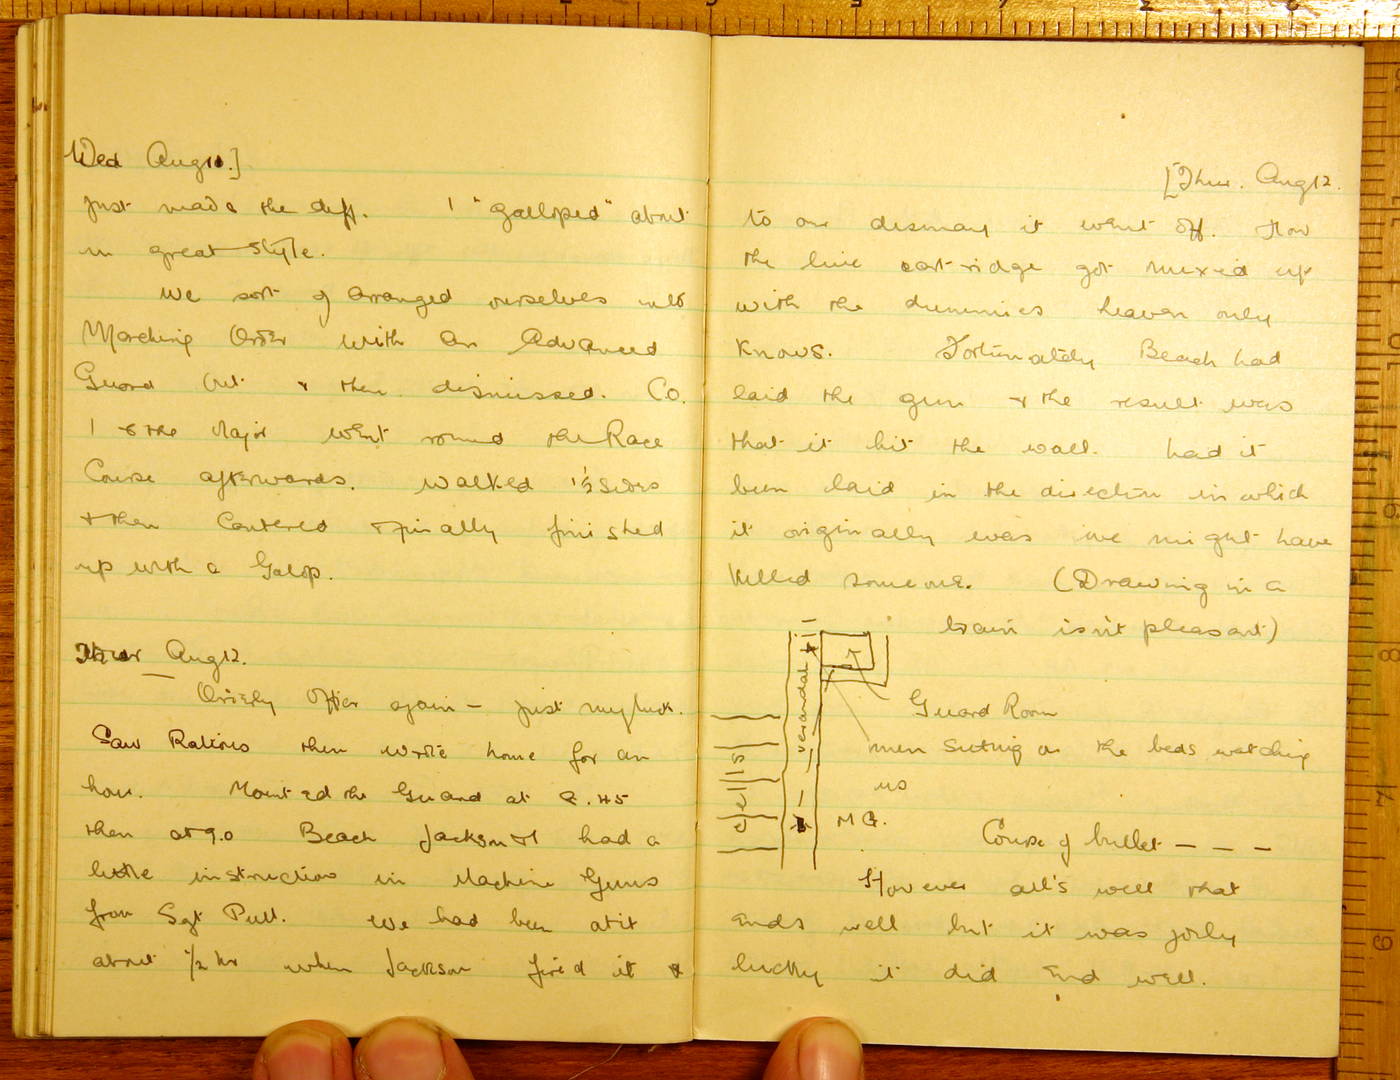 Wed Aug 11.]
just made the diff. I "galloped" about
in great style.
We sort of arranged ourselves into
Marching Order with an Advanced
Guard Out & then dismissed. Co.
I & the Major went round the Race
Course afterwards. Walked 1½ sides
& then Cantered & finally finished
up with a Galop.
Thur Aug 12.
Orderly Officer again — just my luck.
Saw Rations then wrote home for an
hour. Mounted the Guard at 8.45
then at 9.0 Beach Jackson & I had a
little instruction in Machine Guns
from Sgt Pull. We had been at it
about ½ hr when Jackson fired it &
[Thur. Aug 12.
to our dismay it went off. How
the live cartridge got mixed up
with the dummies heaven only
knows. Fortunately Beach had
laid the gun & the result was
that it hit the wall. had it
been laid in the direction in which
it originally was we might have
killed someone. (Drawing in a
train isn't pleasant)
verandah
Cells
Guard Room
men sitting on the beds watching
us
M G.
Course of bullet – – –
However all's well that
ends well but it was jolly
lucky it did end well.